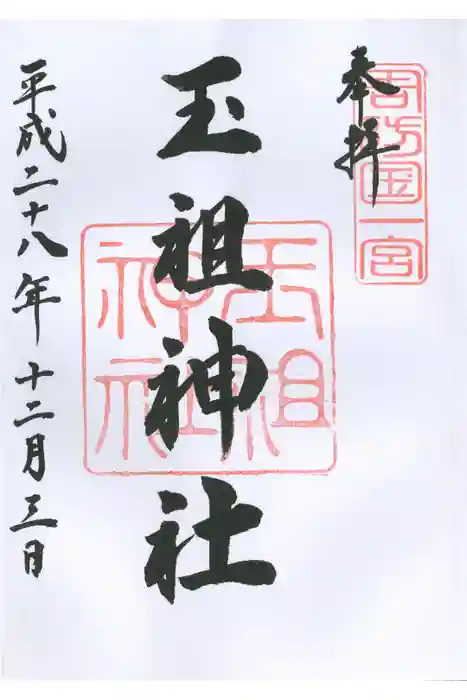 奉拝
周防国一宮
玉祖神社
玉祖神社
平成二十八年十二月三日